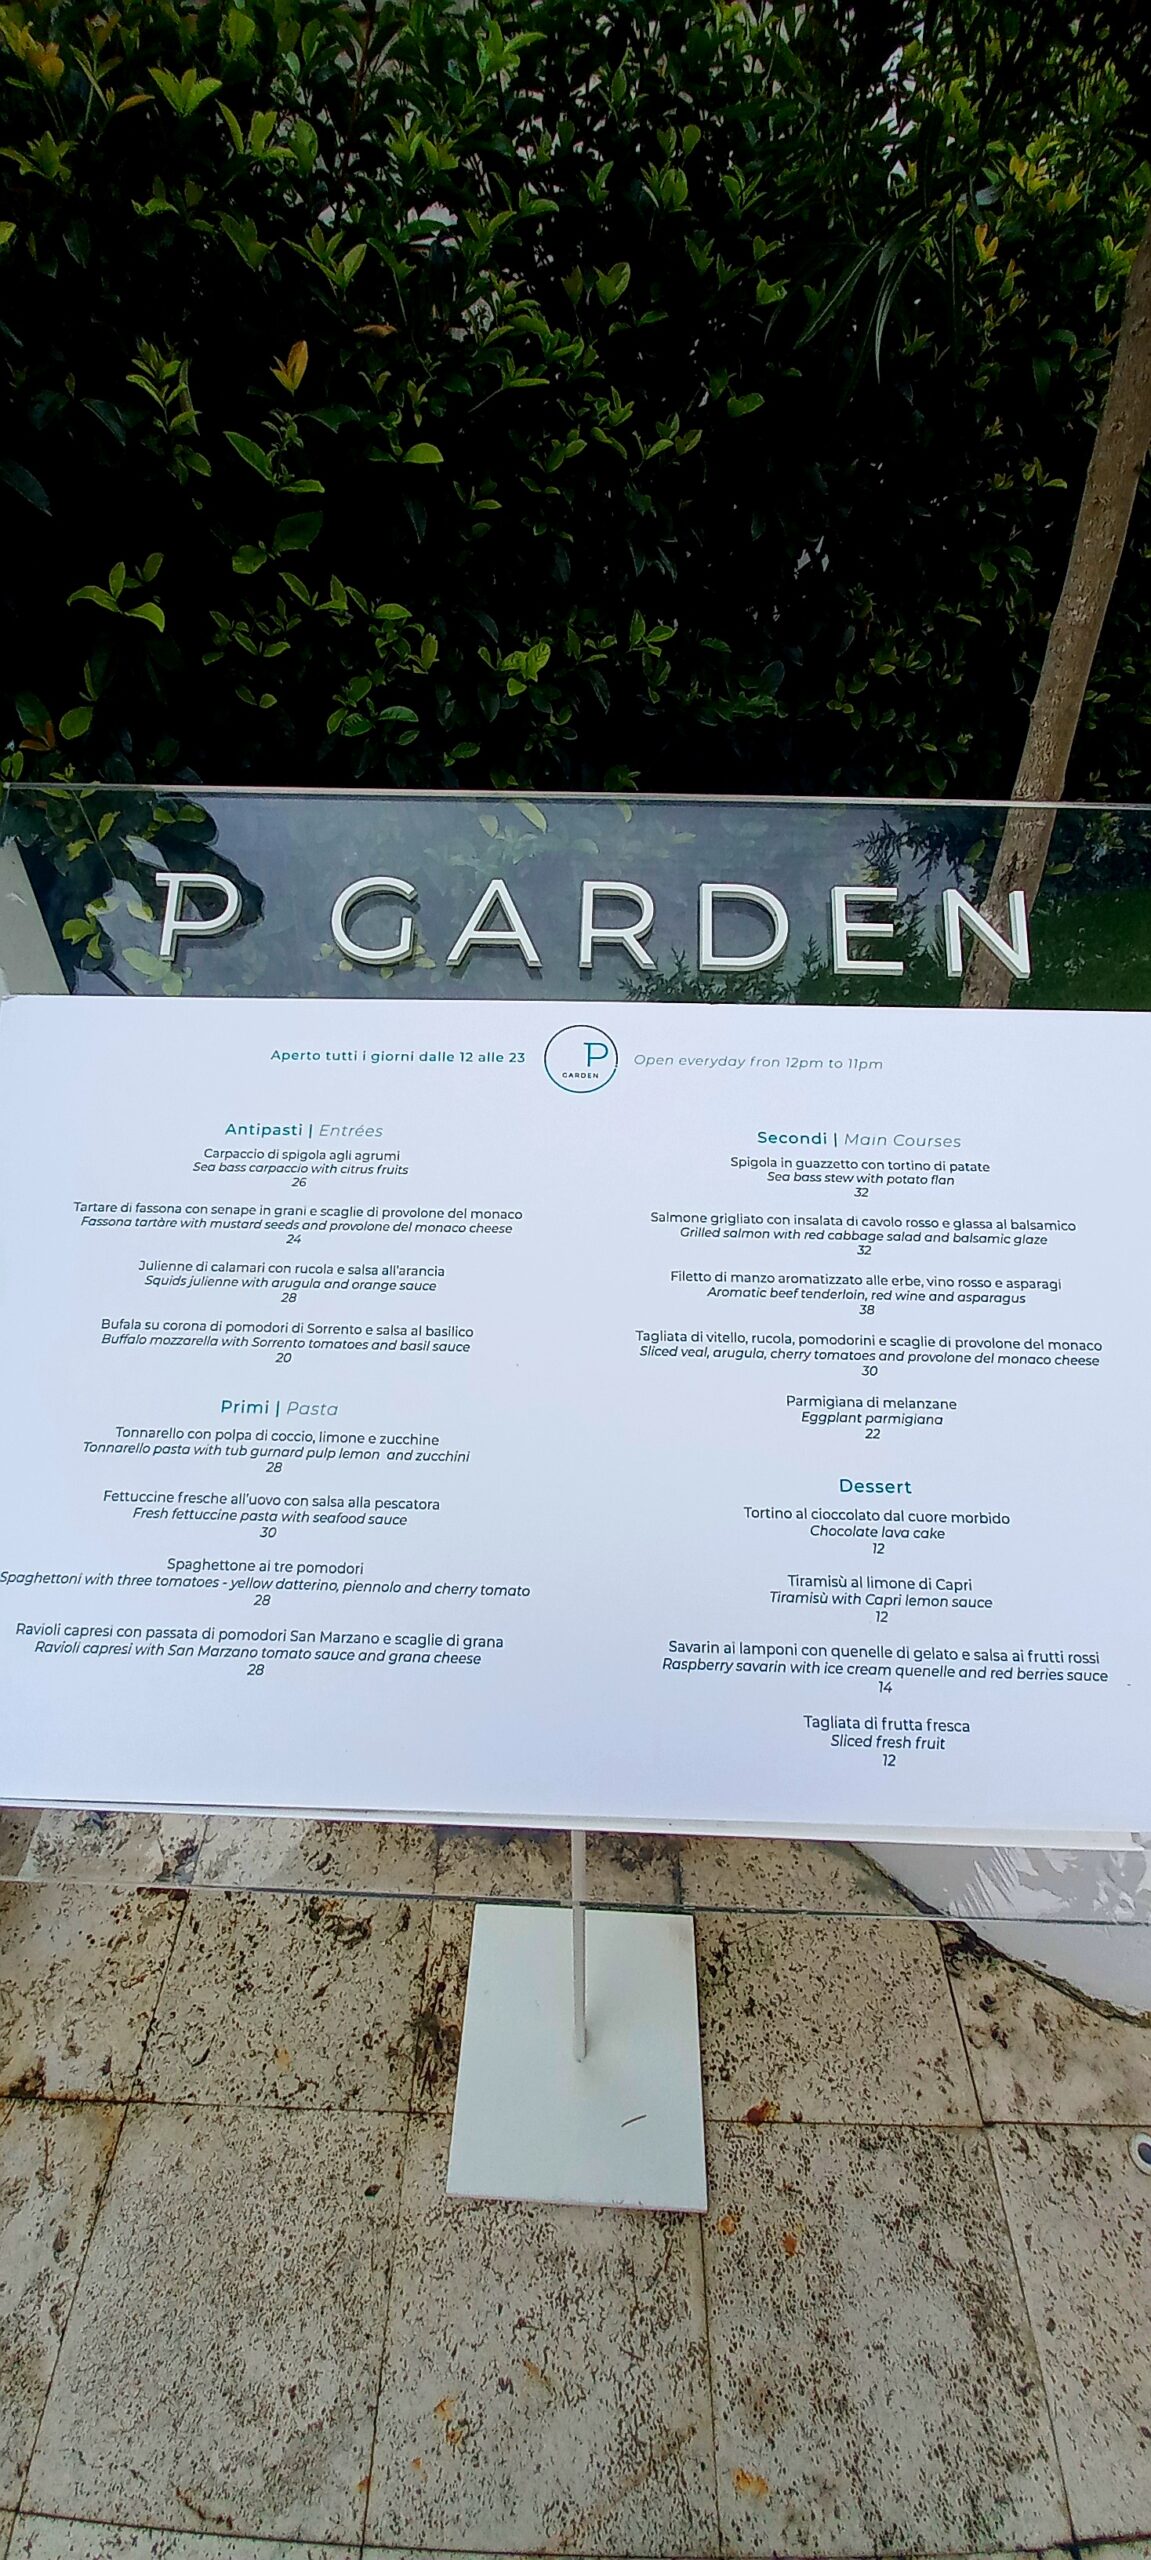 P GARDEN
Aperto tutti i giorni dalle 12 alle 23
P
GARDEN
Open everyday fron 12pm to 11pm
Antipasti | Entrées
Carpaccio di spigola agli agrumi
Sea bass carpaccio with citrus fruits
26
Tartare di fassona con senape in grani e scaglie di provolone del monaco
Fassona tartàre with mustard seeds and provolone del monaco cheese
24
Julienne di calamari con rucola e salsa all'arancia
Squids julienne with arugula and orange sauce
28
Bufala su corona di pomodori di Sorrento e salsa al basilico
Buffalo mozzarella with Sorrento tomatoes and basil sauce
20
Primi | Pasta
Tonnarello con polpa di coccio, limone e zucchine
Tonnarello pasta with tub gurnard pulp lemon and zucchini
28
Fettuccine fresche all'uovo con salsa alla pescatora
Fresh fettuccine pasta with seafood sauce
30
Spaghettone ai tre pomodori
Spaghettoni with three tomatoes - yellow datterino, piennolo and cherry tomato
28
Ravioli capresi con passata di pomodori San Marzano e scaglie di grana
Ravioli capresi with San Marzano tomato sauce and grana cheese
28
Secondi | Main Courses
Spigola in guazzetto con tortino di patate
Sea bass stew with potato flan
32
Salmone grigliato con insalata di cavolo rosso e glassa al balsamico
Grilled salmon with red cabbage salad and balsamic glaze
32
Filetto di manzo aromatizzato alle erbe, vino rosso e asparagi
Aromatic beef tenderloin, red wine and asparagus
38
Tagliata di vitello, rucola, pomodorini e scaglie di provolone del monaco
Sliced veal, arugula, cherry tomatoes and provolone del monaco cheese
30
Parmigiana di melanzane
Eggplant parmigiana
22
Dessert
Tortino al cioccolato dal cuore morbido
Chocolate lava cake
12
Tiramisù al limone di Capri
Tiramisù with Capri lemon sauce
12
Savarin ai lamponi con quenelle di gelato e salsa ai frutti rossi
Raspberry savarin with ice cream quenelle and red berries sauce
14
Tagliata di frutta fresca
Sliced fresh fruit
12